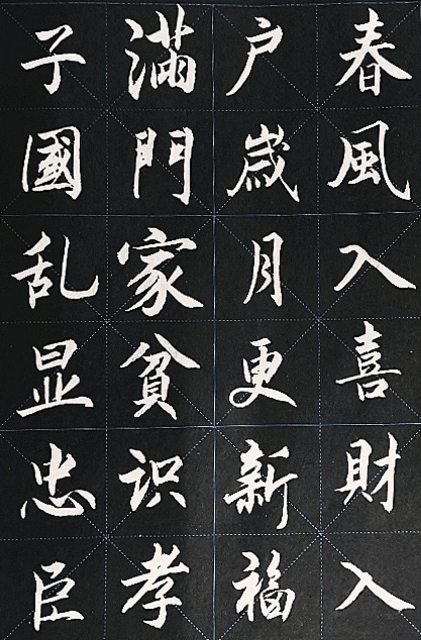 春風入喜財入
户歳月更新福
滿門家貧识孝
子國乱显忠臣